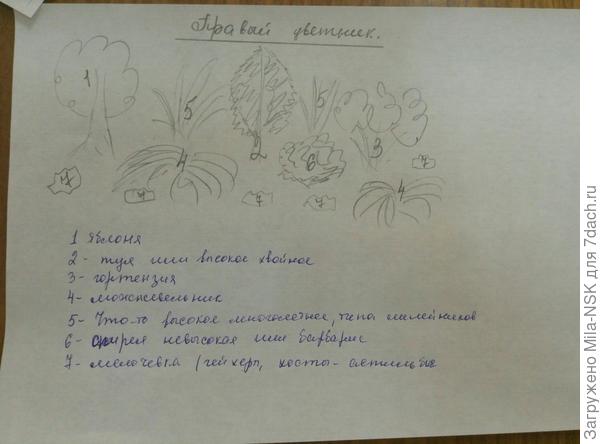 Правый цветник.
1 5 2 5 3
4 6 7
7 7 7 7 4
1 Яблоня
2 - туя или высокое хвойное
3 - гортензия
4 - можжевельник
5 - Что-то высокое многолетнее, типа лилейников
6 - спирея невысокая или барбарис
7 - мелочевка (гейхеры, хосты - астильбы
Загружено Mila-NSK для 7dach.ru